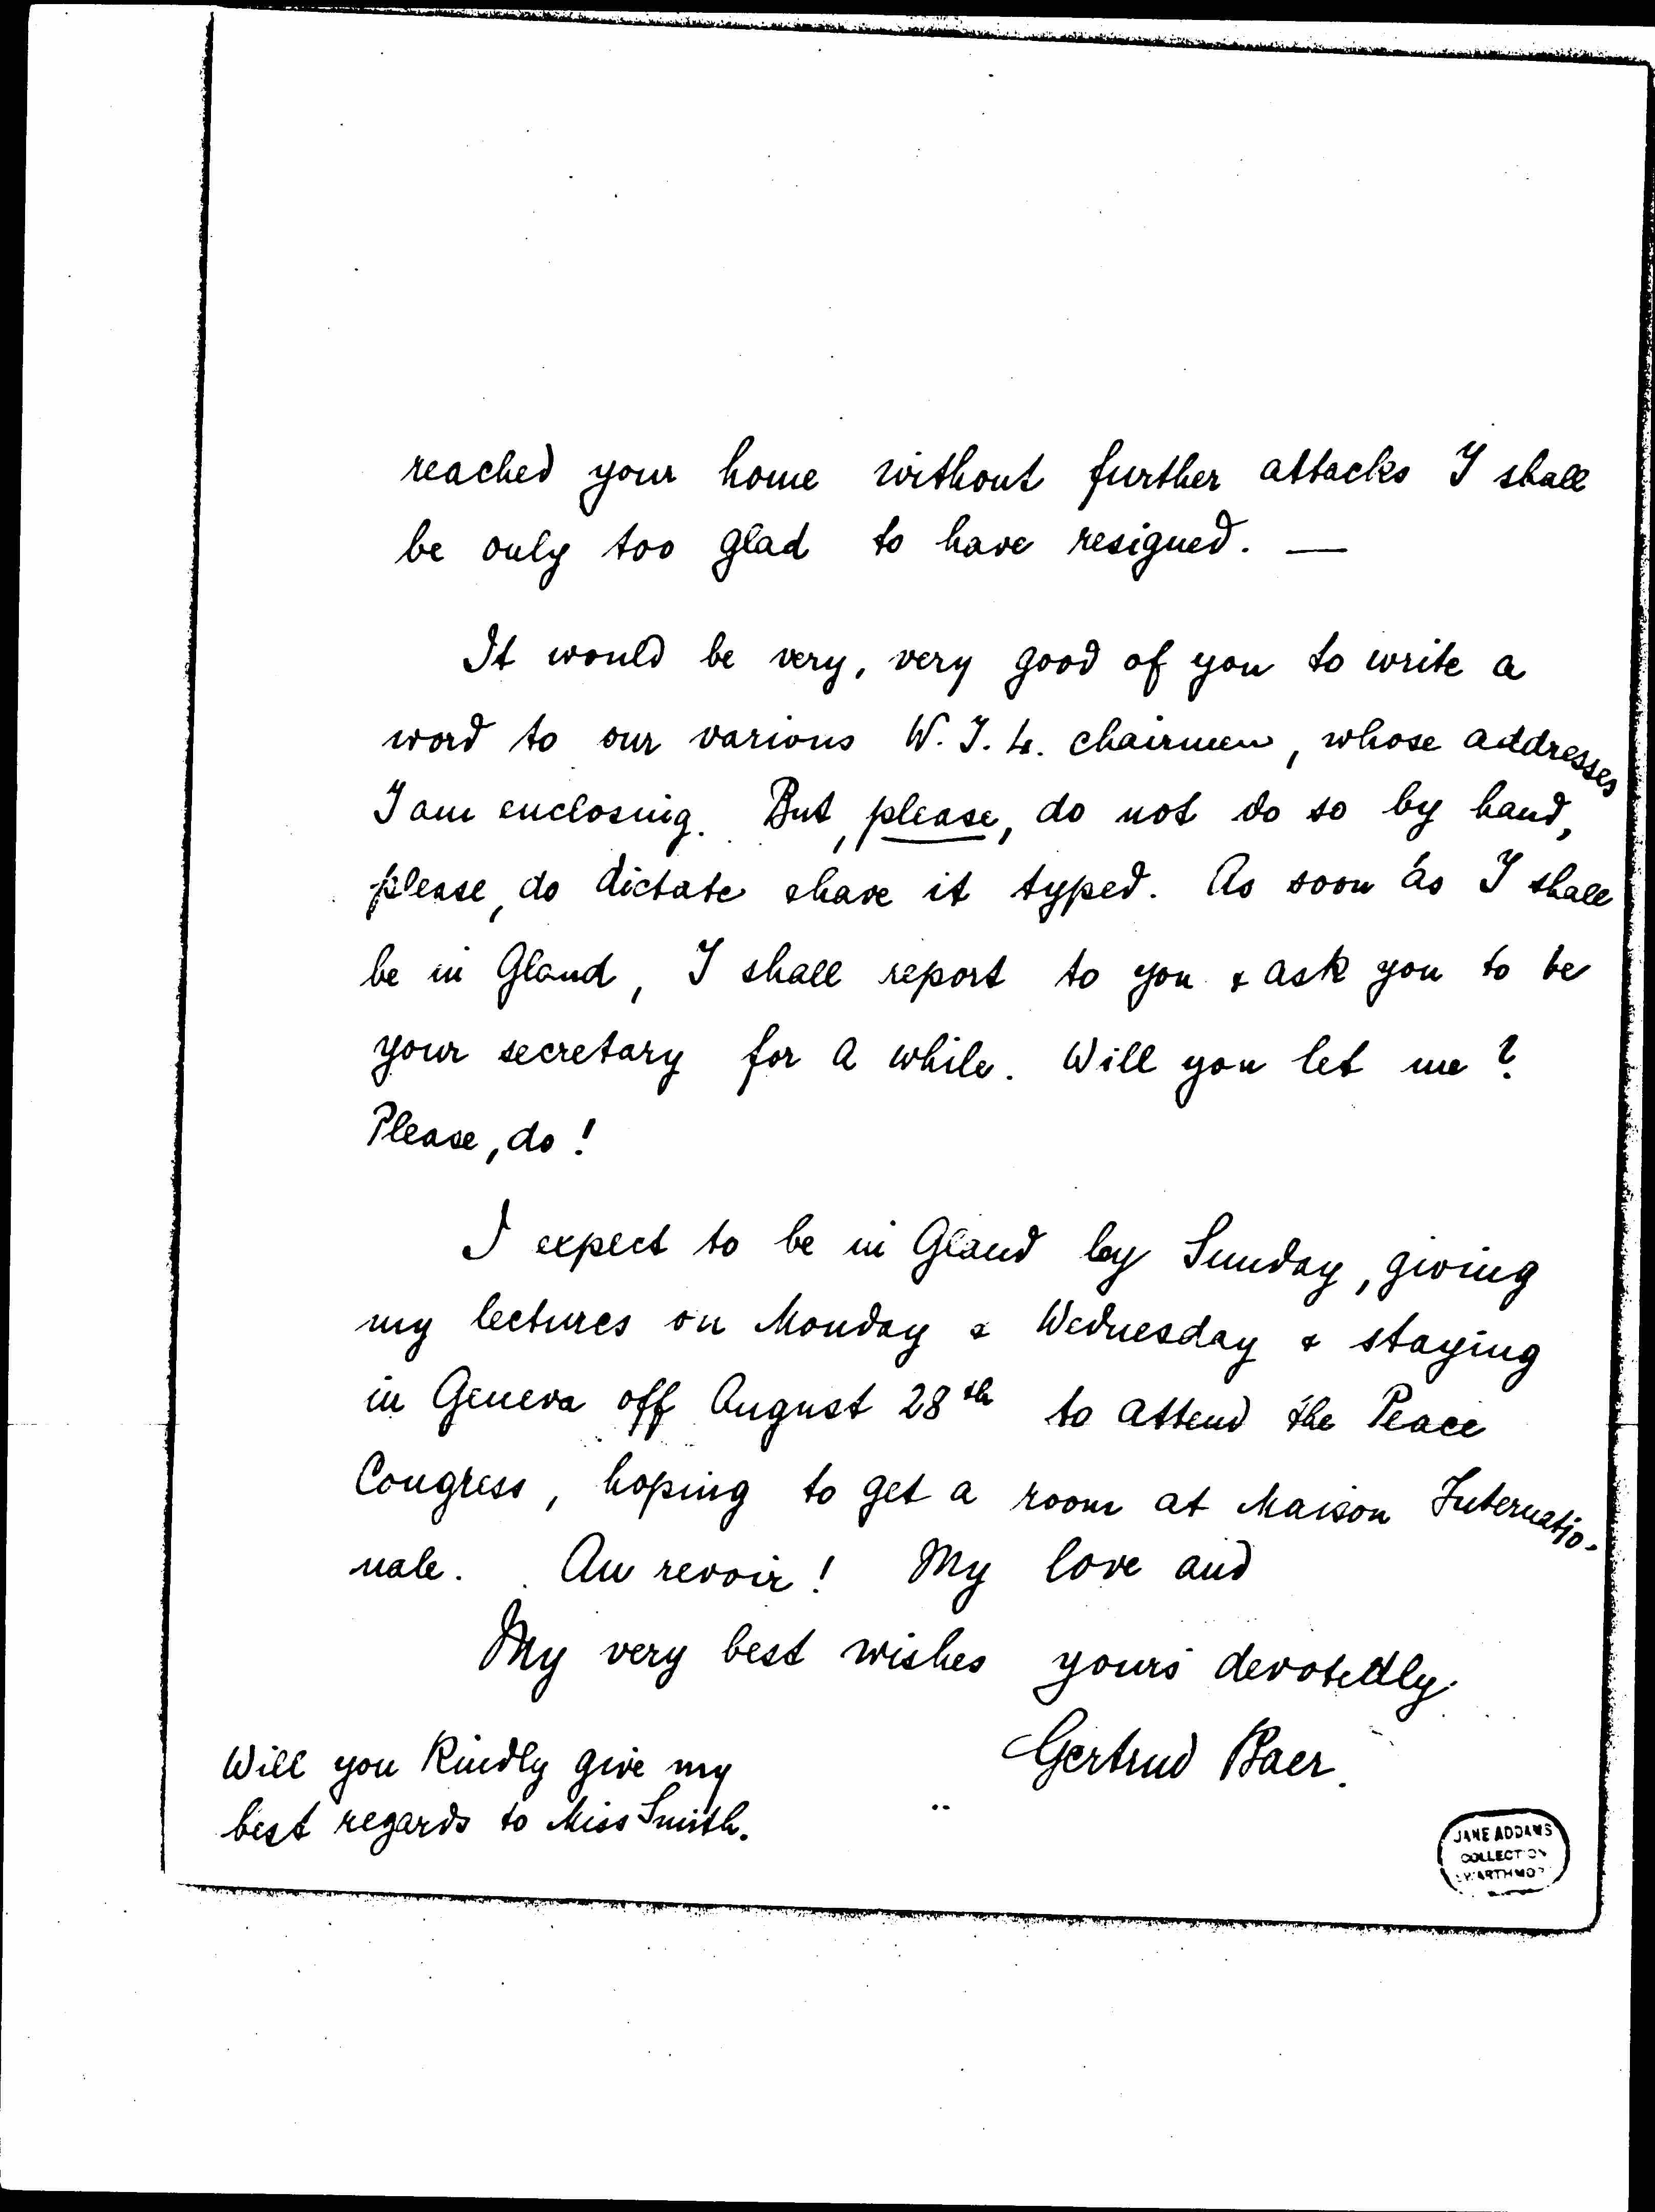 reached your home without further attacks I shall
be only too glad to have resigned. —
It would be very, very good of you to write a
word to our various W.I.L. chairmen, whose addresses
I am enclosing. But, please, do not do so by hand,
please, do dictate & have it typed. As soon as I shall
be in Gland, I shall report to you & ask you to be
your secretary for a while. Will you let me?
Please, do!
I expect to be in Gland by Sunday, giving
my lectures on Monday & Wednesday & staying
in Geneva off August 28th to attend the Peace
Congress, hoping to get a room at Maison Internatio-
nale. Au revoir! My love and
My very best wishes yours devotedly
Gertrud Baer.
Will you kindly give my
best regards to Miss Smith.
JANE ADDAMS
COLLECTION
SWARTHMORE